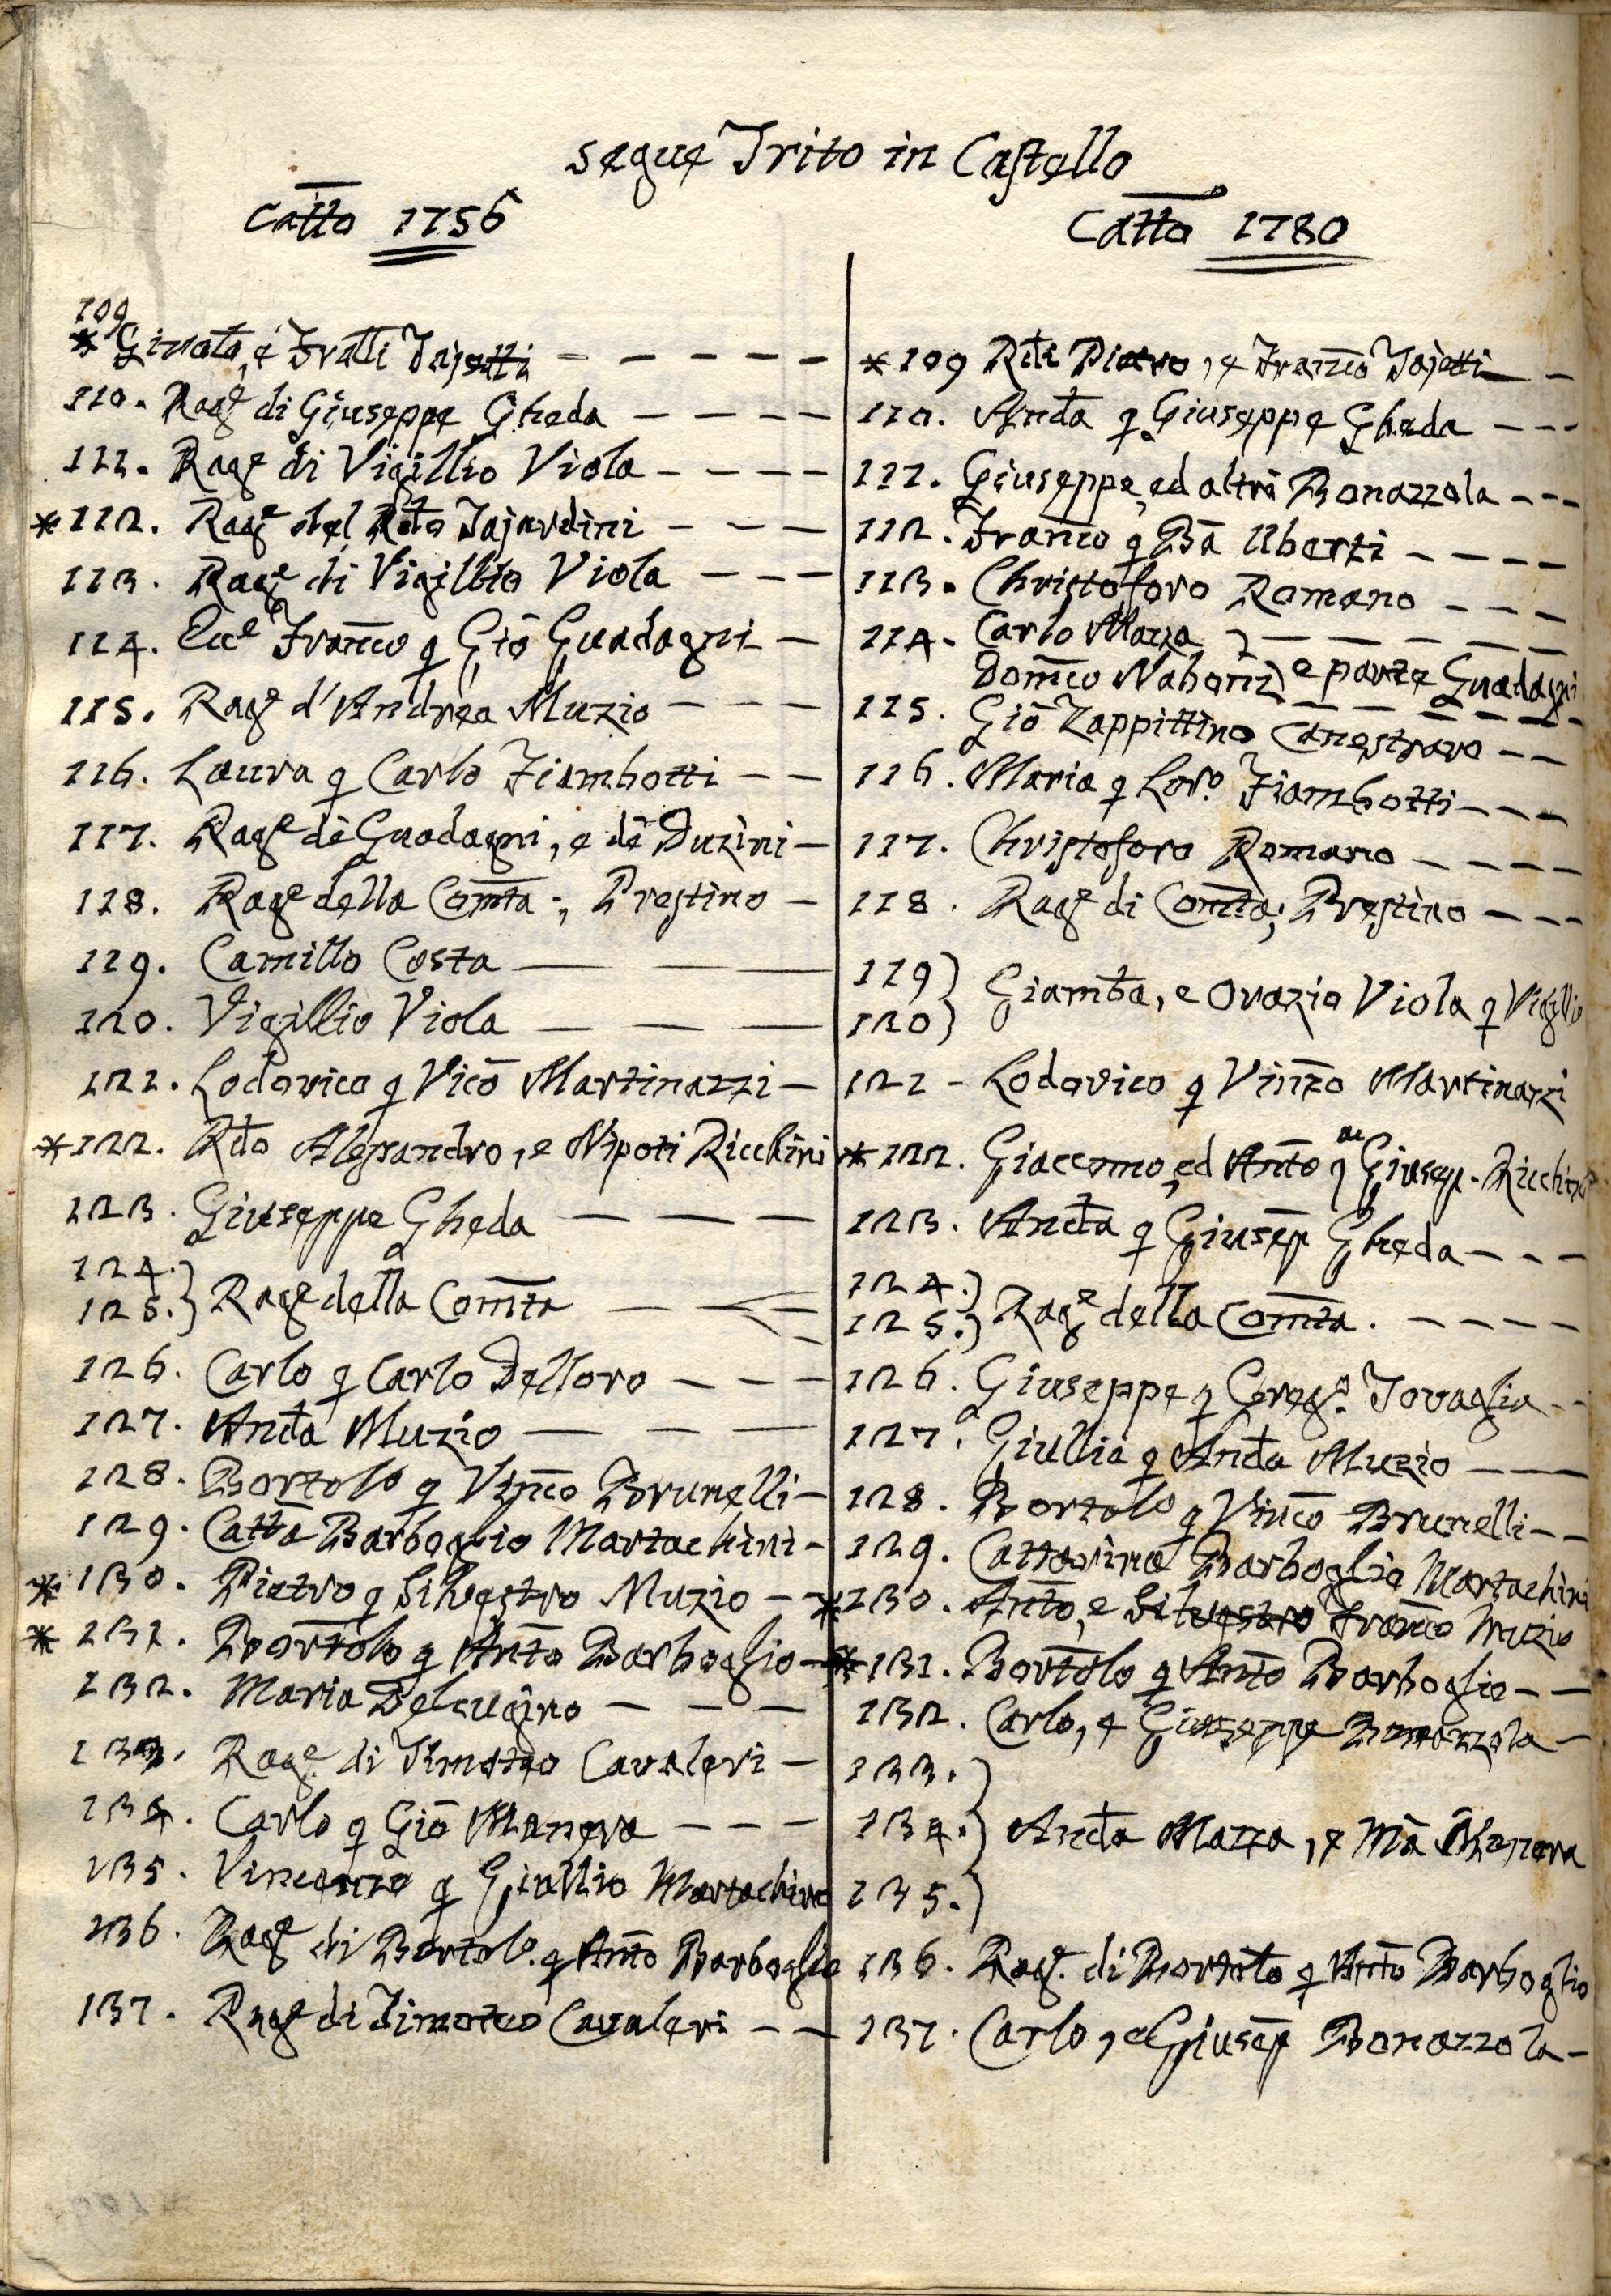 segue Trito in Castello
Catto 1756
109
* Ginota, e Fratti Tajetti
110. Rage di Giuseppe Gheda
111. Rage di Vigillio Viola
*112. Rage del Rdo Tajardini
113. Rage di Vigillio Viola
114. Ecce Franco q Gio Guadagni
115. Rage d'Andrea Muzio
116. Laura q Carlo Fiambotti
117. Rage de Guadagni, e de Duzini
118. Rage della Comta, Prestino
119. Camillo Costa
120. Vigillio Viola
121. Lodovico q Vico Martinazzi
*122. Rdo Alesandro, e Nipoti Ricchini
123. Giuseppe Gheda
124.
125.} Rage della Comta
126. Carlo q Carlo Delloro
127. Anda Muzio
128. Bortolo q Vinco Brunelli
129. Catta Barboglio Martachini
*130. Pietro q Silvestro Muzio
*131. Bortolo q Anto Barboglio
132. Maria
133. Rage di Timoteo Cavaleri
134. Carlo q Gio Manera
135. Vincenzo q Giullio Martachino
136. Rage di Bortolo q Anto Barboglio
137. Rage di Timoteo Cavaleri
Catto 1780
*109 Rdi Pietro, e Franco Tajetti
110. Anda q Giuseppe Gheda
111. Giuseppe, ed altri Bonazzola
112. Franco q Ba Uberti
113. Christoforo Romano
114. Carlo Mazza
Domco Naboni } e parte Guadagni
115. Gio Zappittino Canestraro
116. Maria q Loro. Fiambotti
117. Christoforo Romano
118. Rage di Comta, Prestino
119)
120) Giambta, e Orazio Viola q Vigillio
121 - Lodovico q Vinzo Martinazzi
*122. Giaccomo, ed Anto q Giusep. Ricchini
123. Anda q Giusep Gheda
124.)
125.) Rage della Comta.
126. Giuseppe q Grego. Tovaglia
127. Giullia q Anda Muzio
128. Bortolo q Vinco Brunelli
129. Cattarina Barboglio Martachini
*130. Anto, e Silvestro Franco Muzio
*131. Bortolo q Anto Barboglio
132. Carlo, e Giuseppe Bonazzola
133.)
134.) Anda Mazza, e Ma Manera
135.)
136. Rage. di Bortolo q Anto Barboglio
137. Carlo, e Giusep Bonazzola